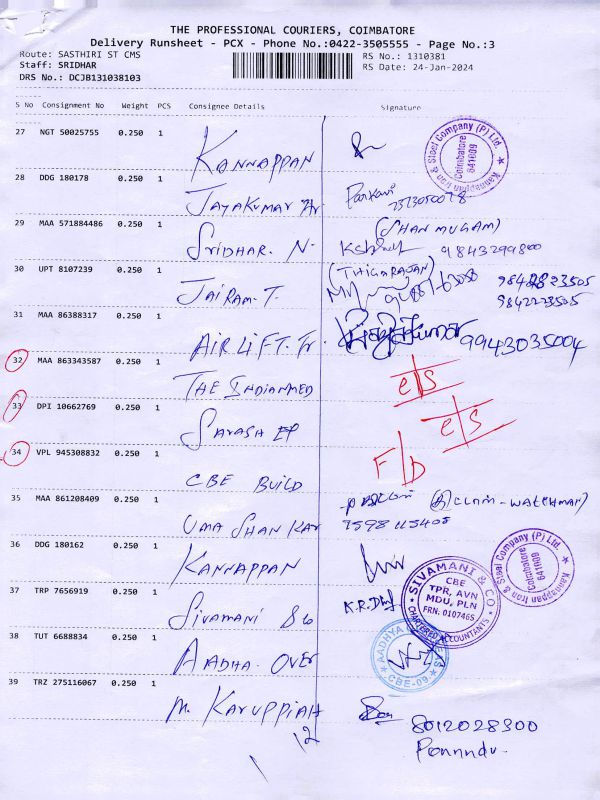 THE PROFESSIONAL COURIERS, COIMBATORE
Delivery Runsheet - PCX - Phone No.:0422-3505555 - Page No.:3
Route: SASTHIRI ST CMS
RS No.: 1310381
Staff: SRIDHAR
RS Date: 24-Jan-2024
DRS No.: DCJB131038103
S No Consignment No Weight PCS Consignee Details Signature
27 NGT 50025755 0.250 1
KANNAPPAN
Kannappan Iron & Steel Company (P) Ltd.
Coimbatore
641009
28 DDG 180178 0.250 1
JAYAKUMAR
29 MAA 571884486 0.250 1
(SHAN MUGAM)
SRIDHAR. N.
9843299800
30 UPT 8107239 0.250 1
(THIGARAJAN)
JAIRAM. T.
9842223505
31 MAA 86388317 0.250 1
AIR LIFT. Tr.
9943035004
32 MAA 863343587 0.250 1
THE INDIANMED
e/s
33 DPI 10662769 0.250 1
e/s
34 VPL 945308832 0.250 1
F/D
CBE BUILD
35 MAA 861208409 0.250 1
UMA SHANKAR
7598115408
36 DDG 180162 0.250 1
KANNAPPAN
Kannappan Iron & Steel Company (P) Ltd.
Coimbatore
641009
37 TRP 7656919 0.250 1
SIVAMANI & Co
SIVAMANI & CO
CBE
TPR, AVN
MDU, PLN
FRN: 010746S
CHARTERED ACCOUNTANTS
38 TUT 6688834 0.250 1
AADHA. OVER
AADHYA OVERSEAS
CBE-09
39 TRZ 275116067 0.250 1
M. KARUPPIAH
8012028300
12